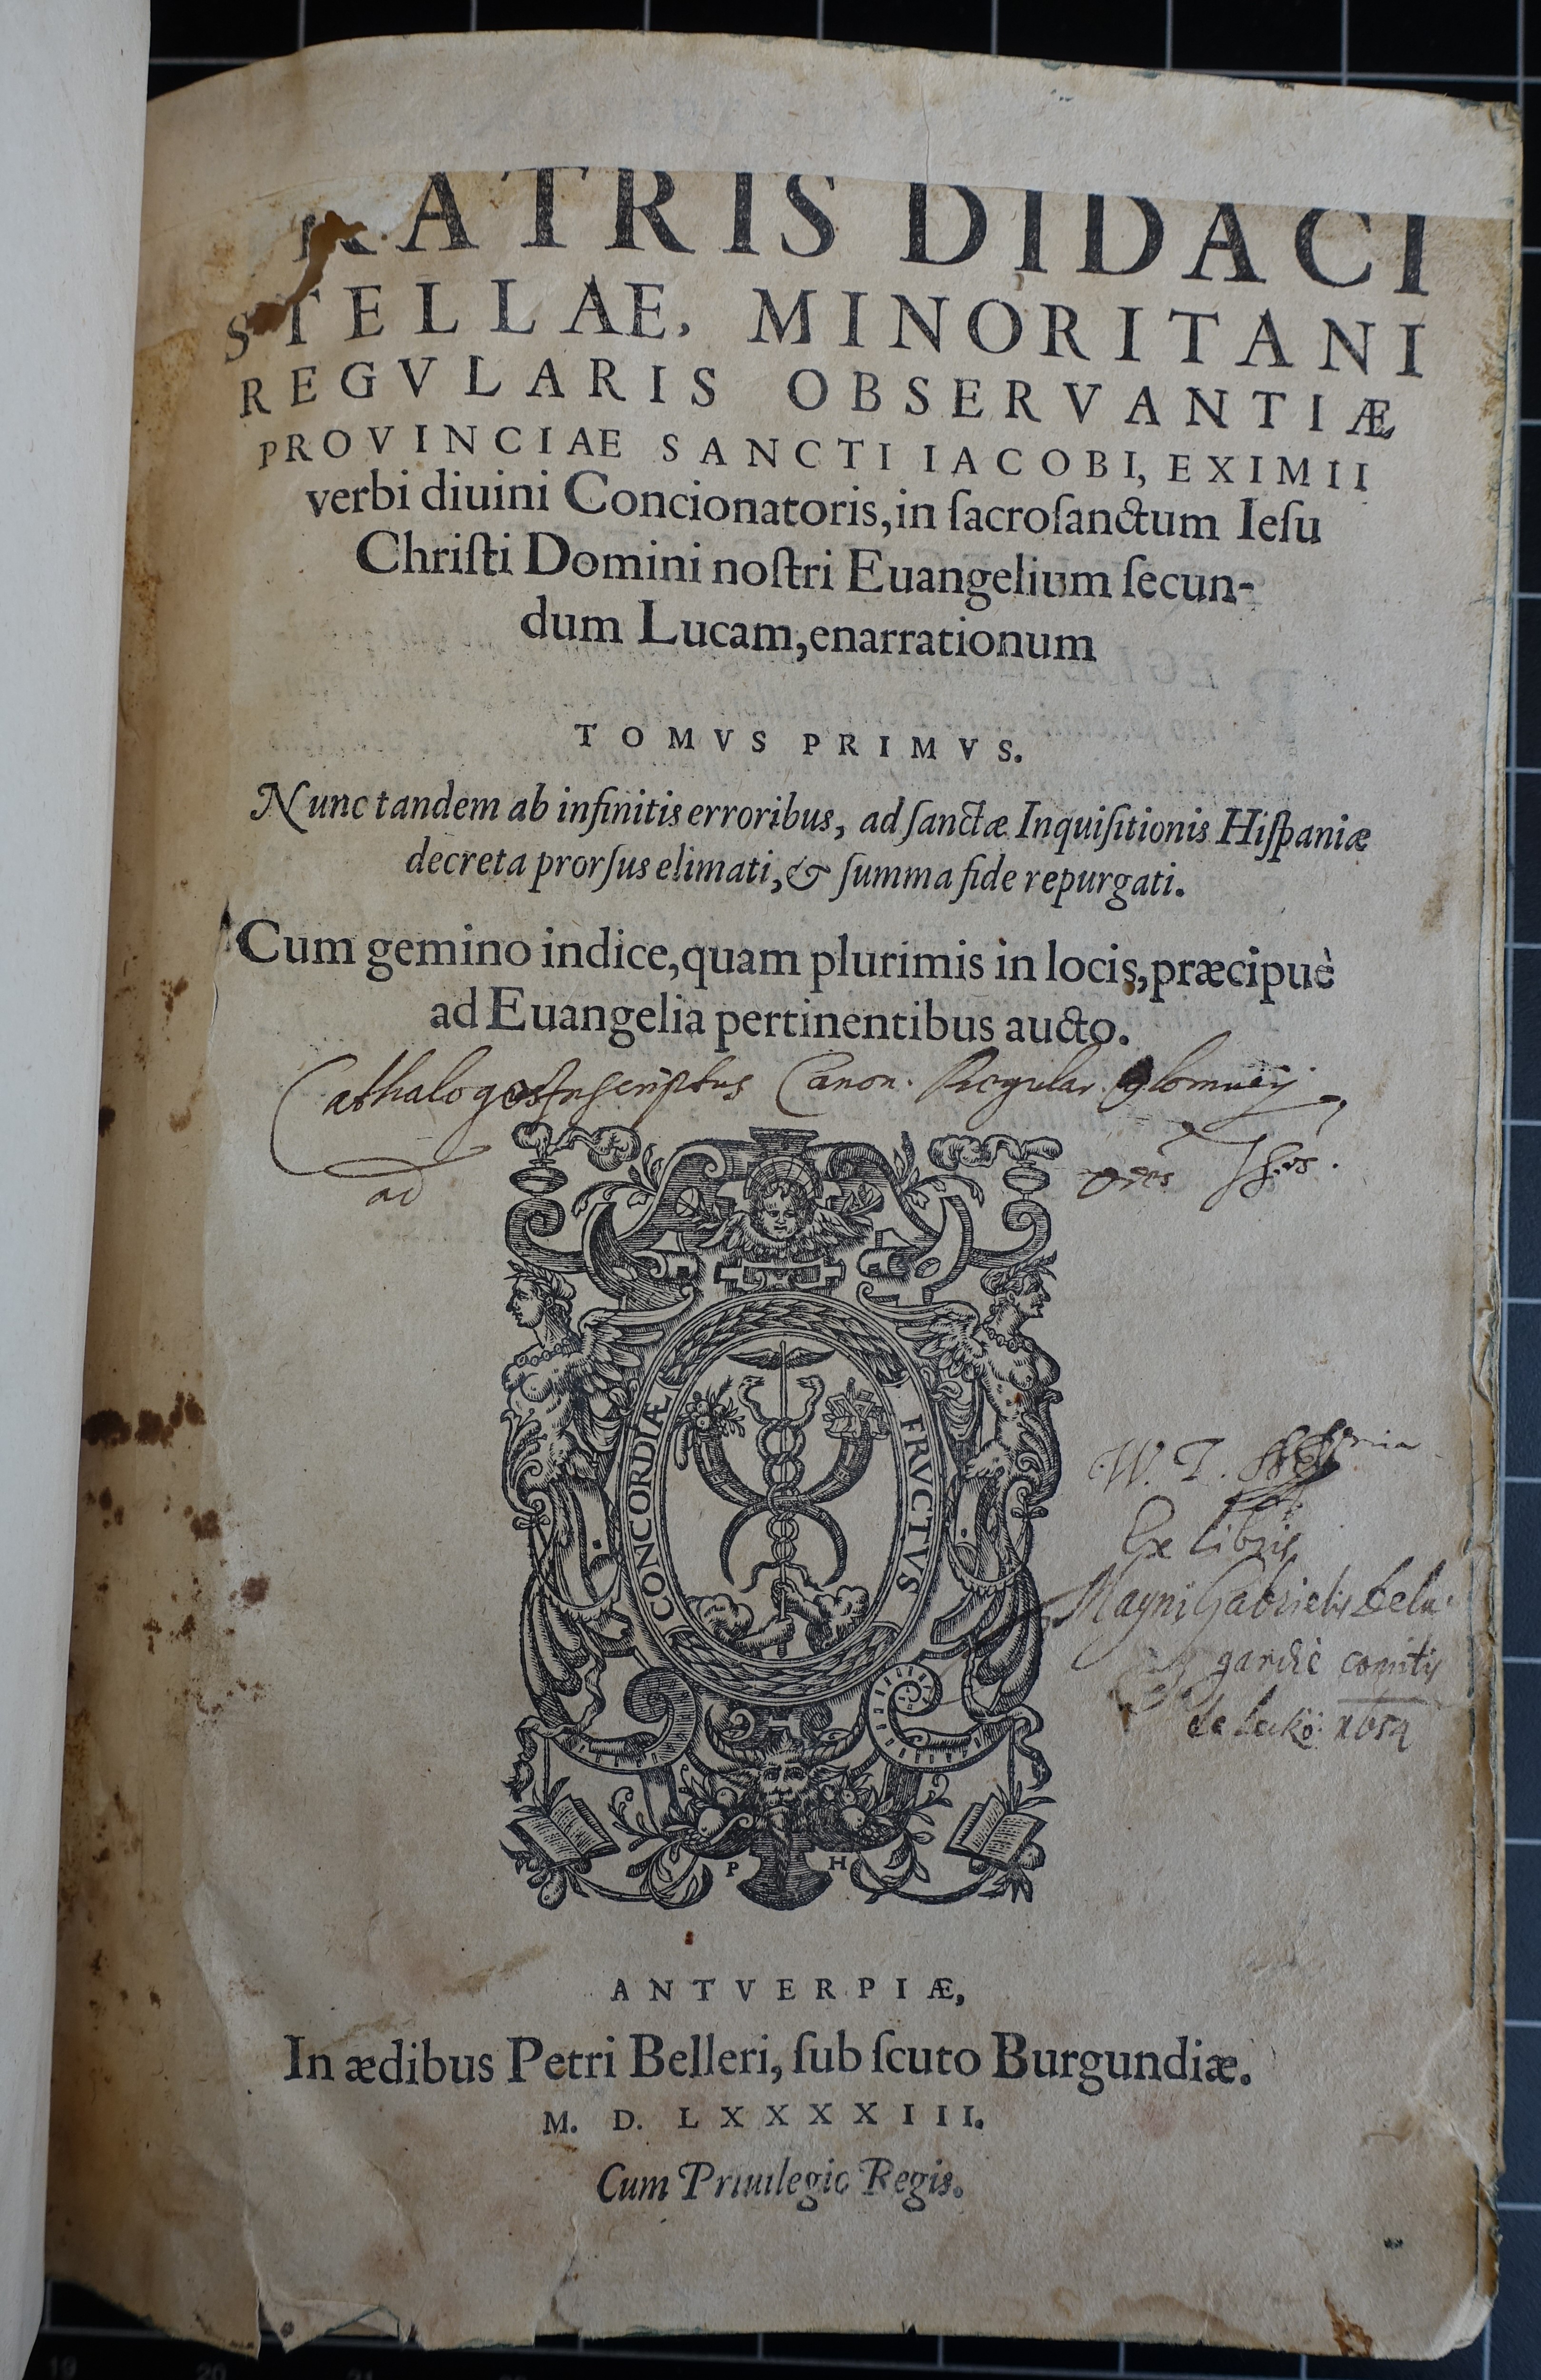 RATRIS DIDACI
STELLAE, MINORITANI
REGVLARIS OBSERVANTIÆ
PROVINCIAE SANCTI IACOBI, EXIMII
verbi diuini Concionatoris, in ſacroſanctum Ieſu
Chriſti Domini noſtri Euangelium ſecun-
dum Lucam, enarrationum
TOMVS PRIMVS.
Nunc tandem ab infinitis erroribus, ad ſanctæ Inquiſitionis Hiſpaniæ
decreta prorſus elimati, & ſumma fide repurgati.
Cum gemino indice, quam plurimis in locis, præcipuè
ad Euangelia pertinentibus aucto.
Canon. Regular.
ad
CONCORDIÆ FRVCTVS
W. T.
Ex libris
Magni Gabrielis Dela
gardie comitis
de
P H
ANTVERPIÆ,
In ædibus Petri Belleri, ſub ſcuto Burgundiæ.
M. D. LXXXXIII.
Cum Priuilegio Regis.
19 20 21